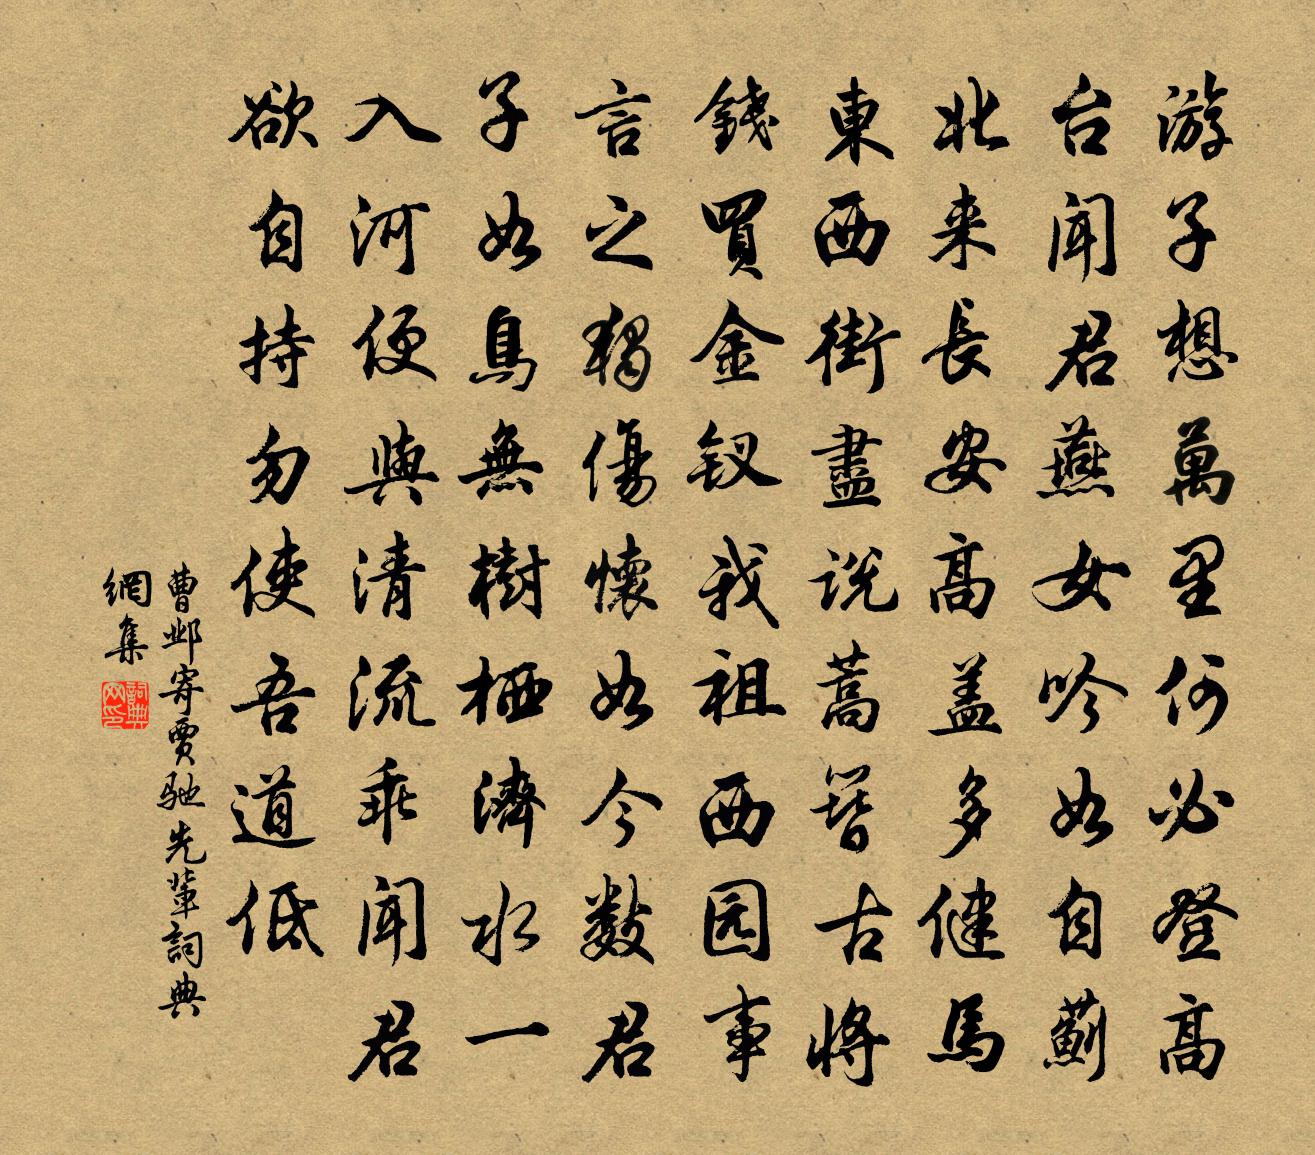 游子想萬里何必登高
台聞君燕女吟如自薊
北来長安高盖多健馬
東西街盡説蒿簪古將
錢買金钗我祖西园事
言之獨傷懷如今数君
子如鳥無樹栖濟水一
入河便與清流乖聞君
欲自持勿使吾道低
曹邺寄賈馳先輩詞典
網集
詞典
网印